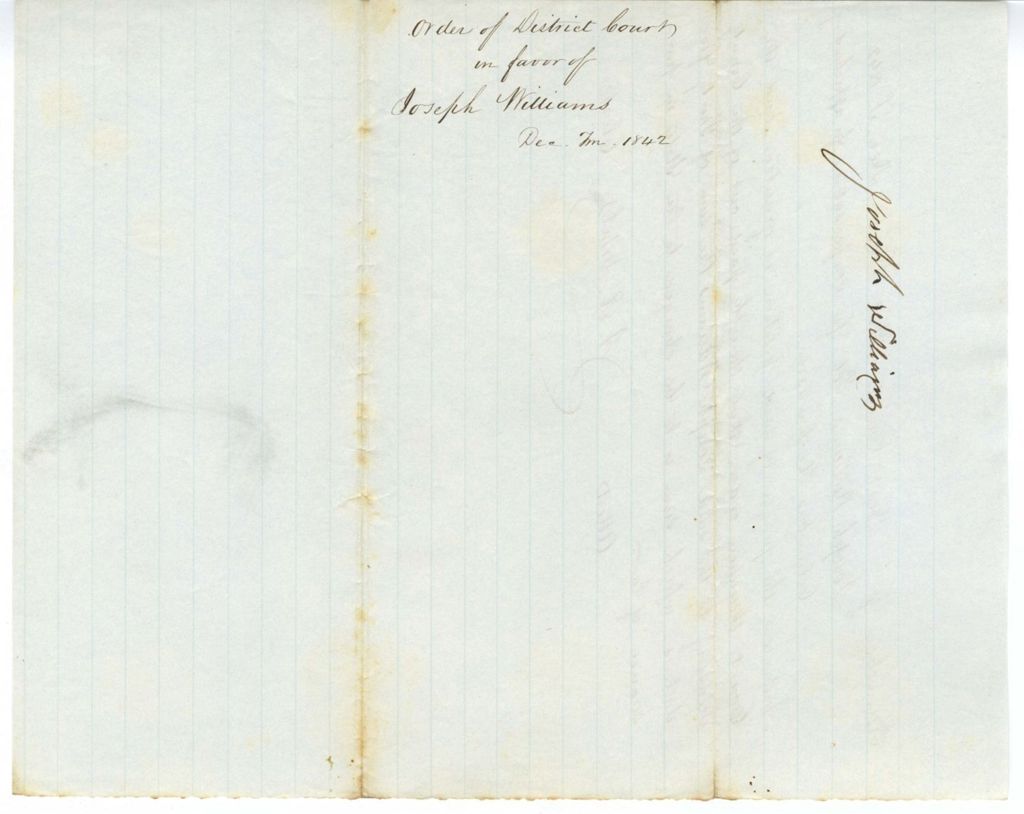 Order of District Court
in favor of
Joseph Williams
Dec. Tm. 1842
Joseph Williams